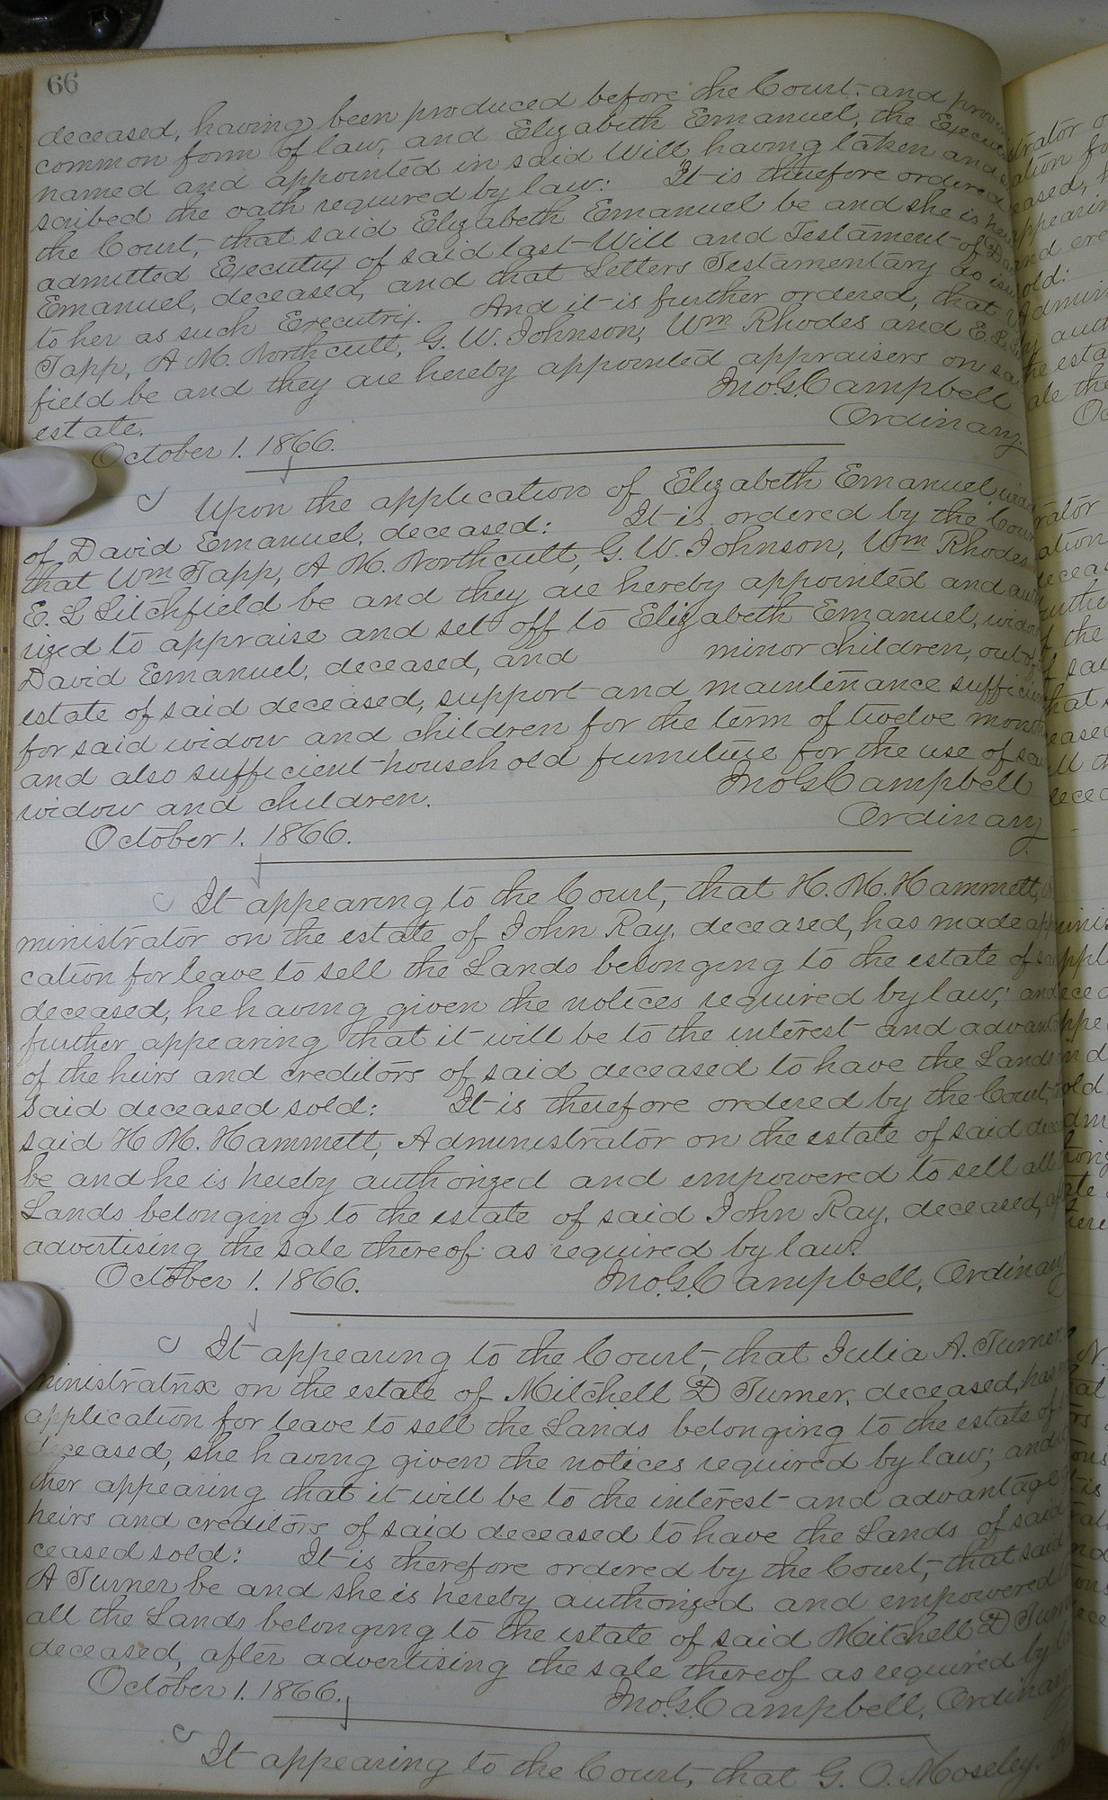 66
deceased, having been produced before the Court, and proven
common form of law, and Elizabeth Emanuel, the
named and appointed in said Will having taken and
scribed the oath required by law: It is therefore ordered
the Court, that said Elizabeth Emanuel be and she is
admitted Executrix of said last Will and Testament of
Emanuel, deceased, and that Letters Testamentary do
to her as such Executrix. And it is further ordered, that
Tapp, A. M. Northcutt, G. W. Johnson, Wm Rhodes and E.
field be and they are hereby appointed appraisers on
estate.
Jno. G. Campbell
Ordinary.
October 1. 1866.
Upon the application of Elizabeth Emanuel,
of David Emanuel, deceased: It is ordered by the
that Wm Tapp, A M. Northcutt, G. W. Johnson, Wm Rhodes
E. L Litchfield be and they are hereby appointed and
ized to appraise and set off to Elizabeth Emanuel,
David Emanuel, deceased, and minor children, out
estate of said deceased, support and maintenance
for said widow and children for the term of twelve
and also sufficient household furniture for the use of
widow and children.
Jno G. Campbell
Ordinary
October 1. 1866.
It appearing to the Court, that H. M. Hammett,
ministrator on the estate of John Ray, deceased, has made
cation for leave to sell the Lands belonging to the estate of
deceased, he having given the notices required by law; and
further appearing that it will be to the interest and
of the heirs and creditors of said deceased to have the Lands
said deceased sold: It is therefore ordered by the Court,
said H M. Hammett, Administrator on the estate of said
be and he is hereby authorized and empowered to sell all
Lands belonging to the estate of said John Ray, deceased,
advertising the sale thereof as required by law.
October 1. 1866. Jno. G. Campbell, Ordinary
It appearing to the Court, that Julia A. Turner
ministratrix on the estate of Mitchell D Turner, deceased, has
application for leave to sell the Lands belonging to the estate of
deceased, she having given the notices required by law; and
ther appearing that it will be to the interest and advantage
heirs and creditors of said deceased to have the Lands of said
ceased sold: It is therefore ordered by the Court, that said
A Turner be and she is hereby authorized and empowered
all the Lands belonging to the estate of said Mitchell D
deceased, after advertising the sale thereof as required by
October 1. 1866. Jno. G. Campbell, Ordinary
It appearing to the Court, that G. O. Moseley.